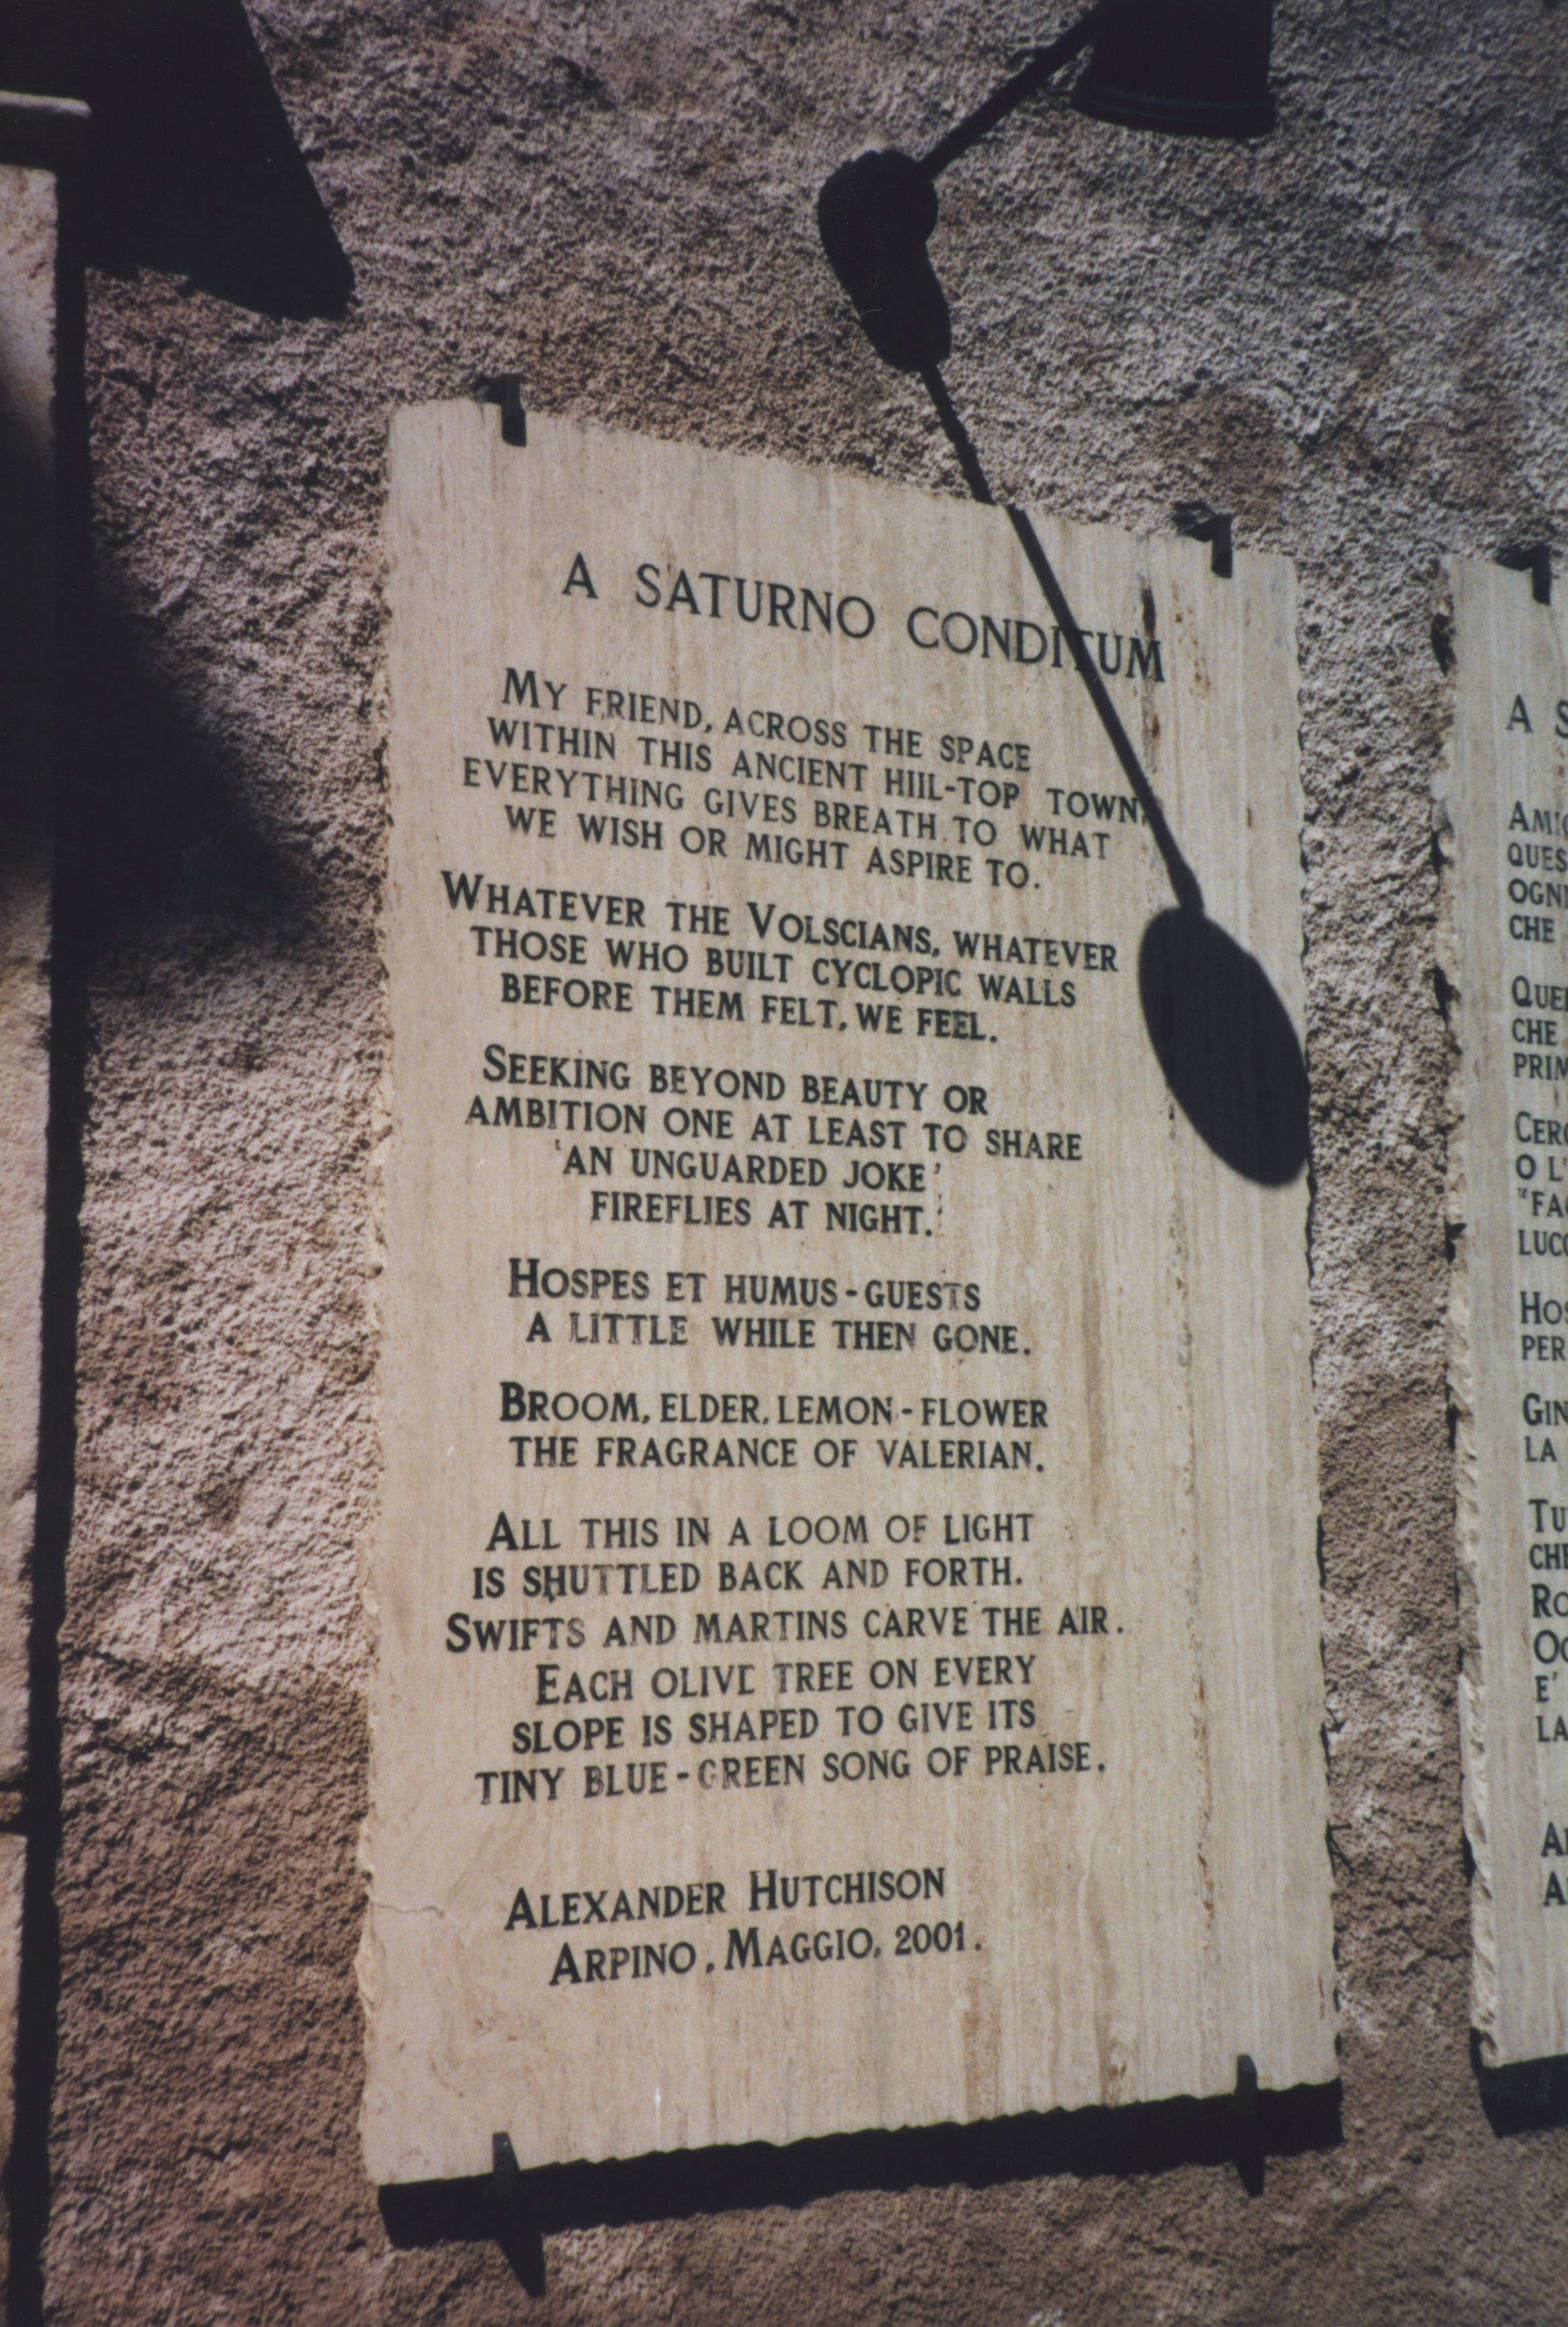 A SATURNO CONDITUM
MY FRIEND, ACROSS THE SPACE
WITHIN THIS ANCIENT HIIL-TOP TOWN,
EVERYTHING GIVES BREATH TO WHAT
WE WISH OR MIGHT ASPIRE TO.
WHATEVER THE VOLSCIANS, WHATEVER
THOSE WHO BUILT CYCLOPIC WALLS
BEFORE THEM FELT, WE FEEL.
SEEKING BEYOND BEAUTY OR
AMBITION ONE AT LEAST TO SHARE
'AN UNGUARDED JOKE'
FIREFLIES AT NIGHT.
HOSPES ET HUMUS-GUESTS
A LITTLE WHILE THEN GONE.
BROOM, ELDER, LEMON-FLOWER
THE FRAGRANCE OF VALERIAN.
ALL THIS IN A LOOM OF LIGHT
IS SHUTTLED BACK AND FORTH.
SWIFTS AND MARTINS CARVE THE AIR.
EACH OLIVE TREE ON EVERY
SLOPE IS SHAPED TO GIVE ITS
TINY BLUE-GREEN SONG OF PRAISE.
ALEXANDER HUTCHISON
ARPINO, MAGGIO, 2001.
A S
AMIC
QUES
OGNI
CHE
QUEL
CHE
PRIM
CERC
O L'
"FA
LUCC
HOS
PER
GIN
LA
TU
CHE
RO
E'
LA